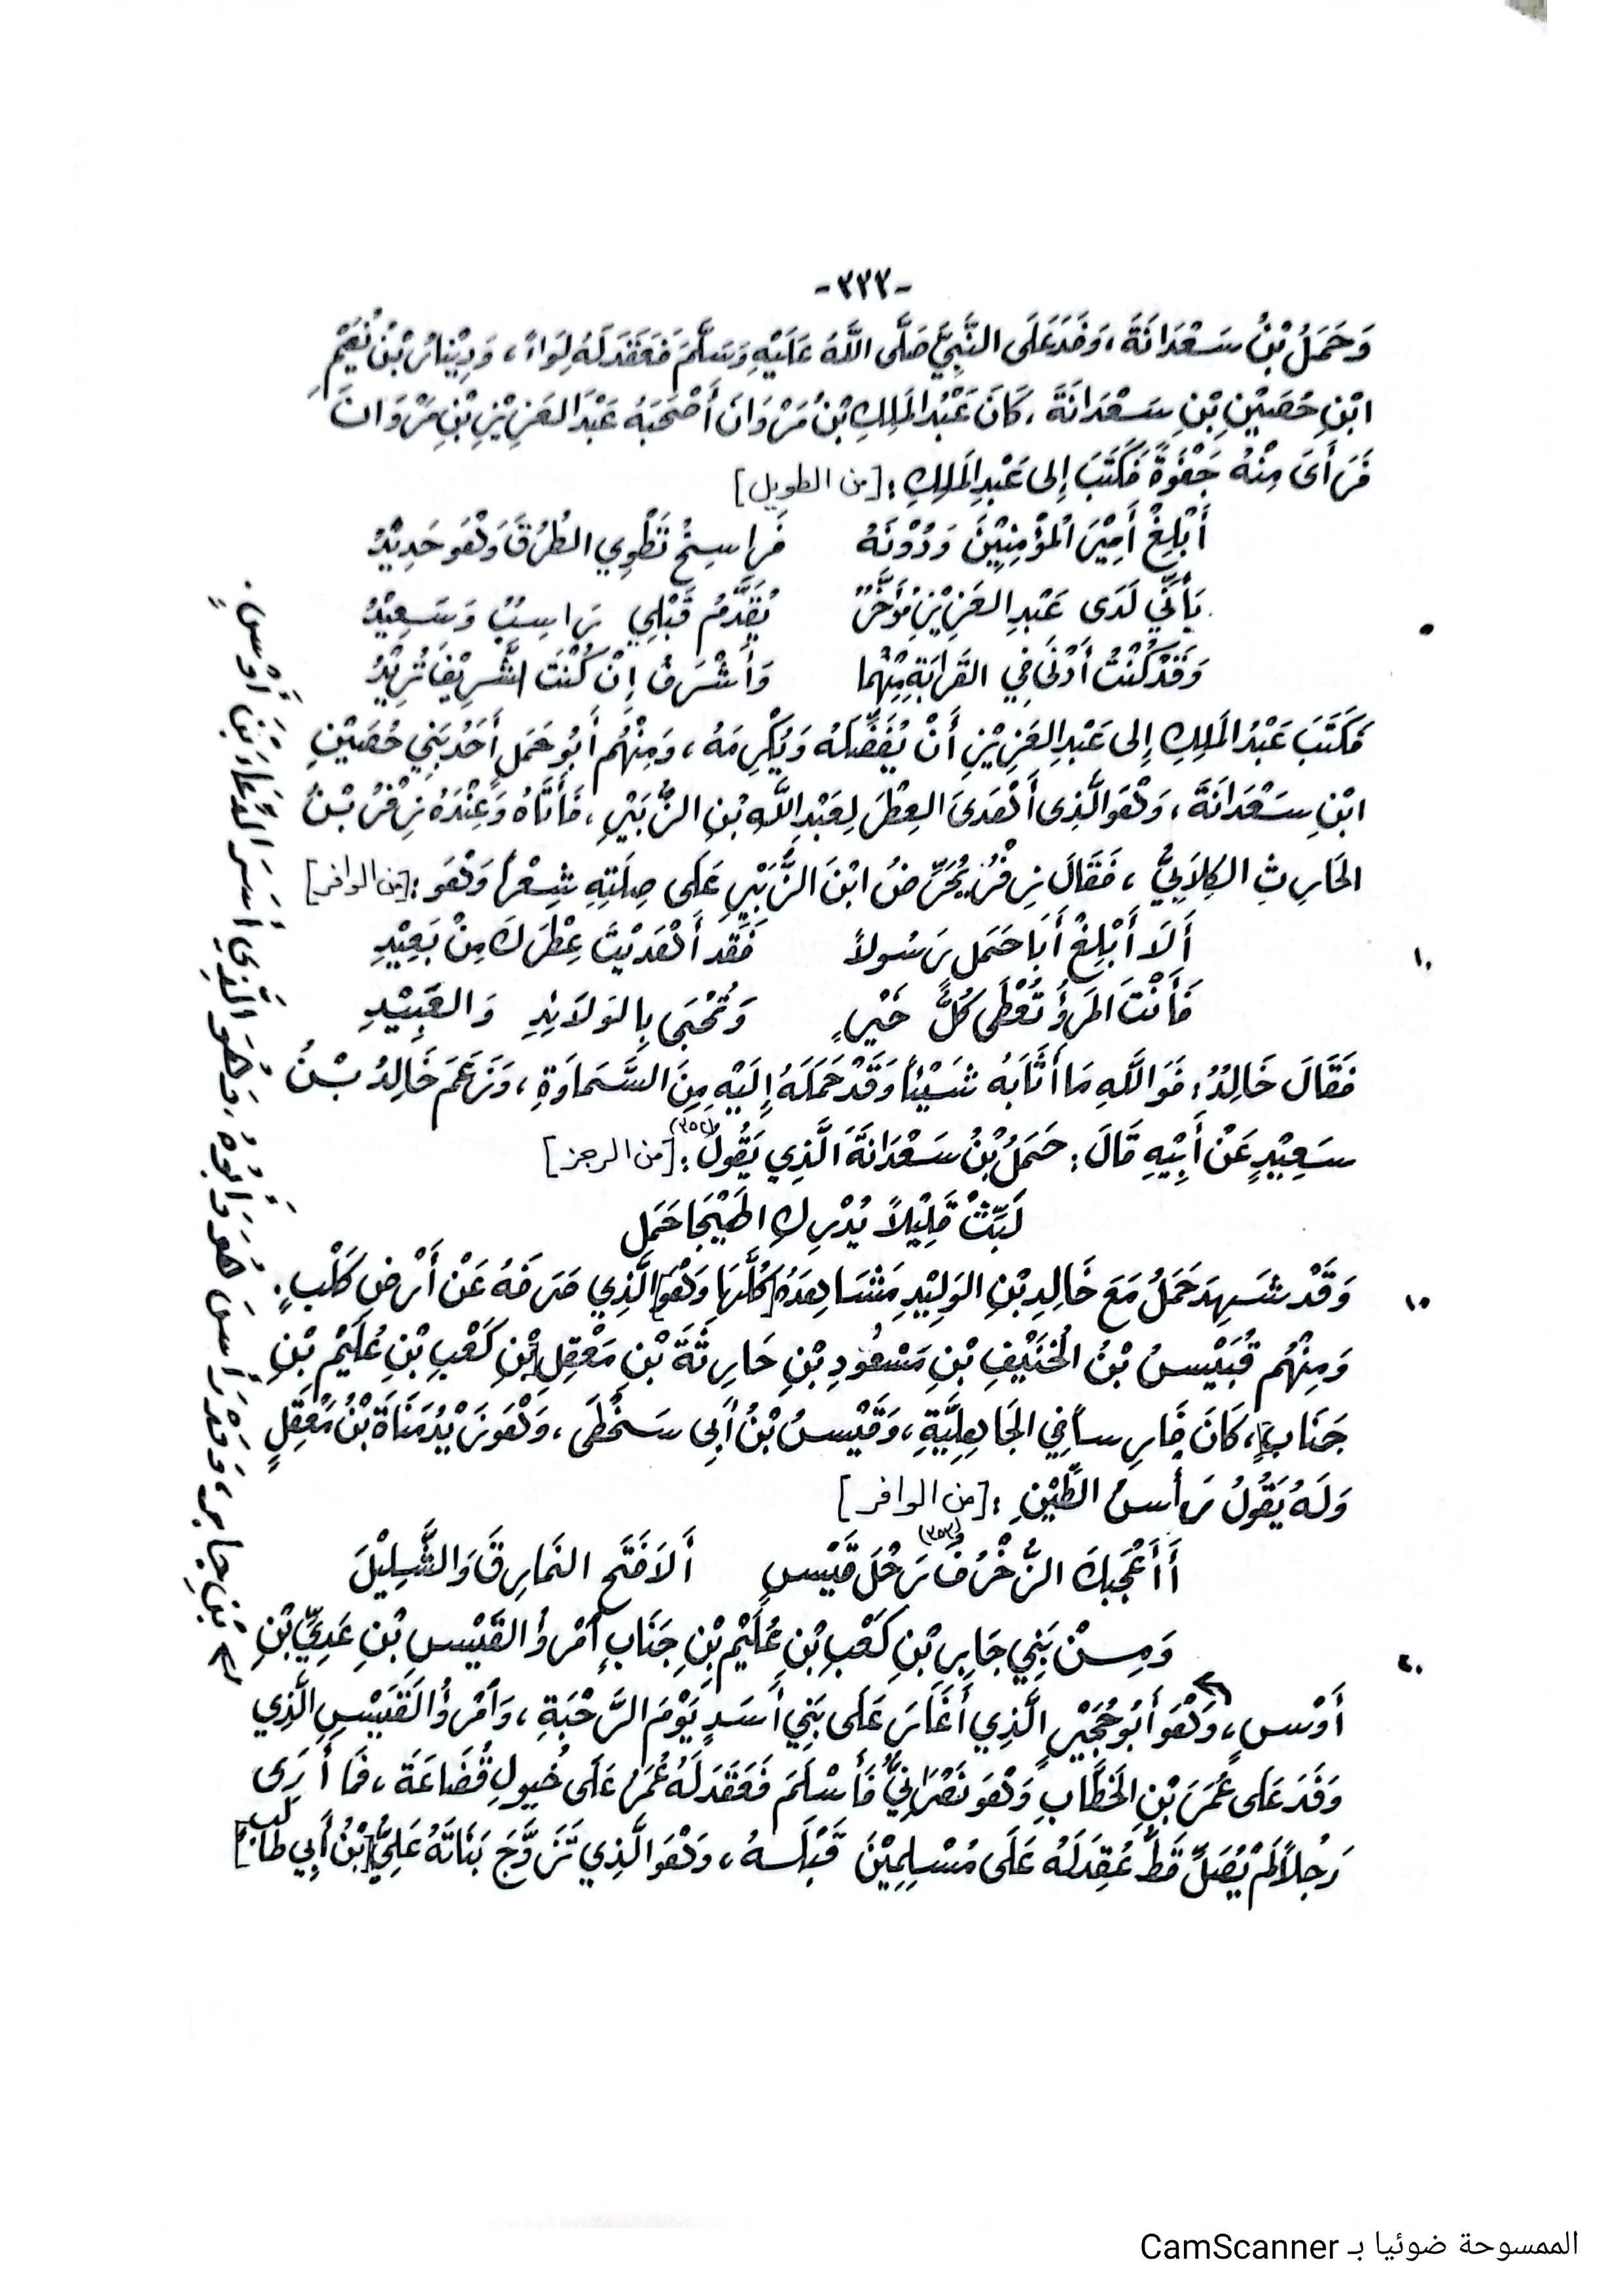 -٣٣٣-
وَحَمَلُ بْنُ سَعْدَانَةَ، وَفَدَ عَلَى النَّبِيِّ صَلَّى اللَّهُ عَلَيْهِ وَسَلَّمَ فَعَقَدَ لَهُ لِوَاءً، وَدِيْنَارُ بْنُ نُعَيْمِ
ابْنِ حُصَيْنِ بْنِ سَعْدَانَةَ، كَانَ عَبْدُ المَلِكِ بْنُ مَرْوَانَ أَصْحَبَهُ عَبْدَ العَزِيْزِ بْنِ مَرْوَانَ
فَرَأَى مِنْهُ جَفْوَةً فَكَتَبَ إِلى عَبْدِ المَلِكِ: [من الطويل]
أَبْلِغْ أَمِيْرَ الْمُؤْمِنِيْنَ وَدُوْنَهُ فَرَاسِخُ تَطْوِي الطُّرْقَ وَهْوَ حَدِيْدُ
بَأَنِّي لَدَى عَبْدِ العَزِيْزِ مُؤَخَّرٌ يُقَدَّمُ قَبْلِي رَاسِبٌ وَسَعِيْدُ
وَقَدْ كُنْتُ أَدْنَى فِي القَرَابَةِ مِنْهُما وَأَشْرَفُ إِنْ كُنْتَ الشَّرِيْفَ تُرِيْدُ
فَكَتَبَ عَبْدُ المَلِكِ إِلى عَبْدِ العَزِيْزِ أَنْ يُفَضِّلَهُ وَيُكْرِمَهُ، وَمِنْهُم أَبُو حَمَلٍ أَحَدُ بَنِي حُصَيْنِ
ابْنِ سَعْدَانَةَ، وَهْوَ الَّذِى أَهْدَىَ العِطْرَ لِعَبْدِ اللَّهِ بْنِ الزُّبَيْرِ، فَأَتَاهُ وَعِنْدَهُ زِفْرُ بْنُ
الحَارِثِ الكِلاَبِيُّ، فَقَالَ زِفْرُ يُحَرِّضُ ابْنَ الزُّبَيْرِ عَلَى صِلَتِهِ شِعْراً وَهْوَ: [من الوافر]
أَلاَ أَبْلِغْ أَبَا حَمَلٍ رَسُولاً فَقَد أَهْدَيْتَ عِطْرَكَ مِنْ بَعِيْدِ
فَأَنْتَ المَرْؤُ تُعْطَى كُلَّ خَيْرٍ وَتُحْبَى بِالوَلاَئِدِ وَالعَبِيْدِ
فَقَالَ خَالِدُ: فَوَاللَّهِ مَا أَثَابَهُ شَيْئاً وَقَدْ حَمَلَهُ إِلَيْهِ مِنَ السَّمَاوَةِ، وَزَعَمَ خَالِدُ بْنُ
سَعِيْدٍ عَنْ أَبِيْهِ قَالَ: حَمَلُ بْنُ سَعْدَانَةَ الَّذِي يَقُولُ: (٣٥٢) [من الرجز]
لَبِّثْ قَلِيْلاً يُدْرِكِ الهَيْجَا حَمَل
وَقَدْ شَهِدَ حَمَلُ مَعَ خَالِدِ بْنِ الوَلِيْدِ مَشَاهِدَهُ كُلَّهَا وَهْوَ الَّذِي صَرَفَهُ عَنْ أَرْضِ كَلْبٍ.
وَمِنْهُم قُبَيْسُ بْنُ الحُنَيْفِ بْنِ مَسْعُودِ بْنِ حَارِثَةَ بْنِ مَعْقِلِ بْنِ كَعْبِ بْنِ عُلَيْمِ بْنِ
جَنَابٍ، كَانَ فَارِساً فِي الجَاهِلِيَّةِ، وَقَيْسُ بْنُ أَبِى سَخْطَى، وَهْوَ زَيْدُ مَنَاةَ بْنُ مَعْقِلٍ
وَلَهُ يَقُولُ رَأْسُ الطِّيْنِ: [من الوافر]
أَأَعْجَبَكَ الزُّخْرُفُ (٣٥٣) رَحْلَ قَيْسٍ أَلاَ فَتَح النَمارِقَ وَالشَّلِيْلَ
وَمِنْ بَنِي جَابِرِ بْنِ كَعْبِ بْنِ عُلَيْمِ بْنِ جَنَابٍ أمْرؤُ القَيْسِ بْنِ عَدِيِّ بْنِ
أَوْسٍ، وَهْوَ أَبُو حُجَيْرٍ الَّذِي أَغَارَ عَلَى بَنِي أَسَدٍ يَوْمَ الرَّحْبَةِ، وَأمْرؤُ القَيْسِ الَّذِي
وَفَدَ عَلى عُمَرَ بْنِ الخَطَّابِ وَهْوَ نَصْرَانِيٌّ فَأَسْلَمَ فَعَقَدَ لَهُ عُمَرُ عَلَى خُيُولِ قُضَاعَةَ، فَمَا أَرَى
رَجُلاً لَمْ يُصَلِّ قَطُّ عُقِدَ لَهُ عَلَى مُسْلِمِيْنَ قَبْلَهُ، وَهْوَ الَّذِي تَزَوَّجَ بَنَاتَهُ عَلِيُّ [بْنُ أَبِي طالب]
٥
١٠
١٥
٢٠
بْنِ جابر، وَقَدْ رَأَسَ هُوَ وَأَبُوهُ، وَهُوَ الَّذِي أَسَرَ الدَّعَّاءَ بْنَ أَوْسٍ.
الممسوحة ضوئيا بـ CamScanner